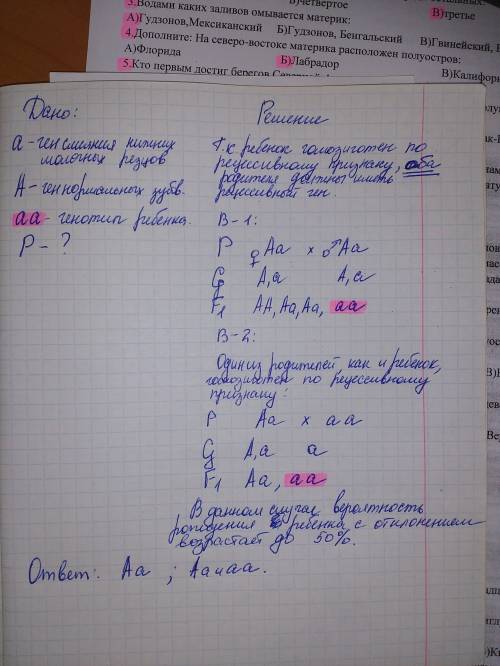 3.Водами каких заливов омывается материк:
А)Гудзонов,Мексиканский Б)Гудзонов, Бенгальский В)Гвинейский,
4.Дополните: На северо-востоке материка расположен полуостров:
А)Флорида Б)Лабрадор В)Калифор
5.Кто первым достиг берегов
В)третье
Дано:
а - ген слияния нижних
молочных резцов
А - ген нормальных зубов.
аа - генотип ребенка.
Р - ?
Решение
Т.к ребенок гомозиготен по
рецессивному признаку, оба
родителя должны иметь
рецессивный ген.
В-1:
Р ♀Аа х ♂Аа
G А,а А,а
F1 АА, Аа, Аа, аа
В-2:
Один из родителей, как и ребенок,
гомозиготен по рецессивному
признаку:
Р Аа х аа
G А,а а
F1 Аа, аа
В данном случае вероятность
рождения ребенка с отклонением
возрастает до 50%.
Ответ: Аа ; Аа и аа.